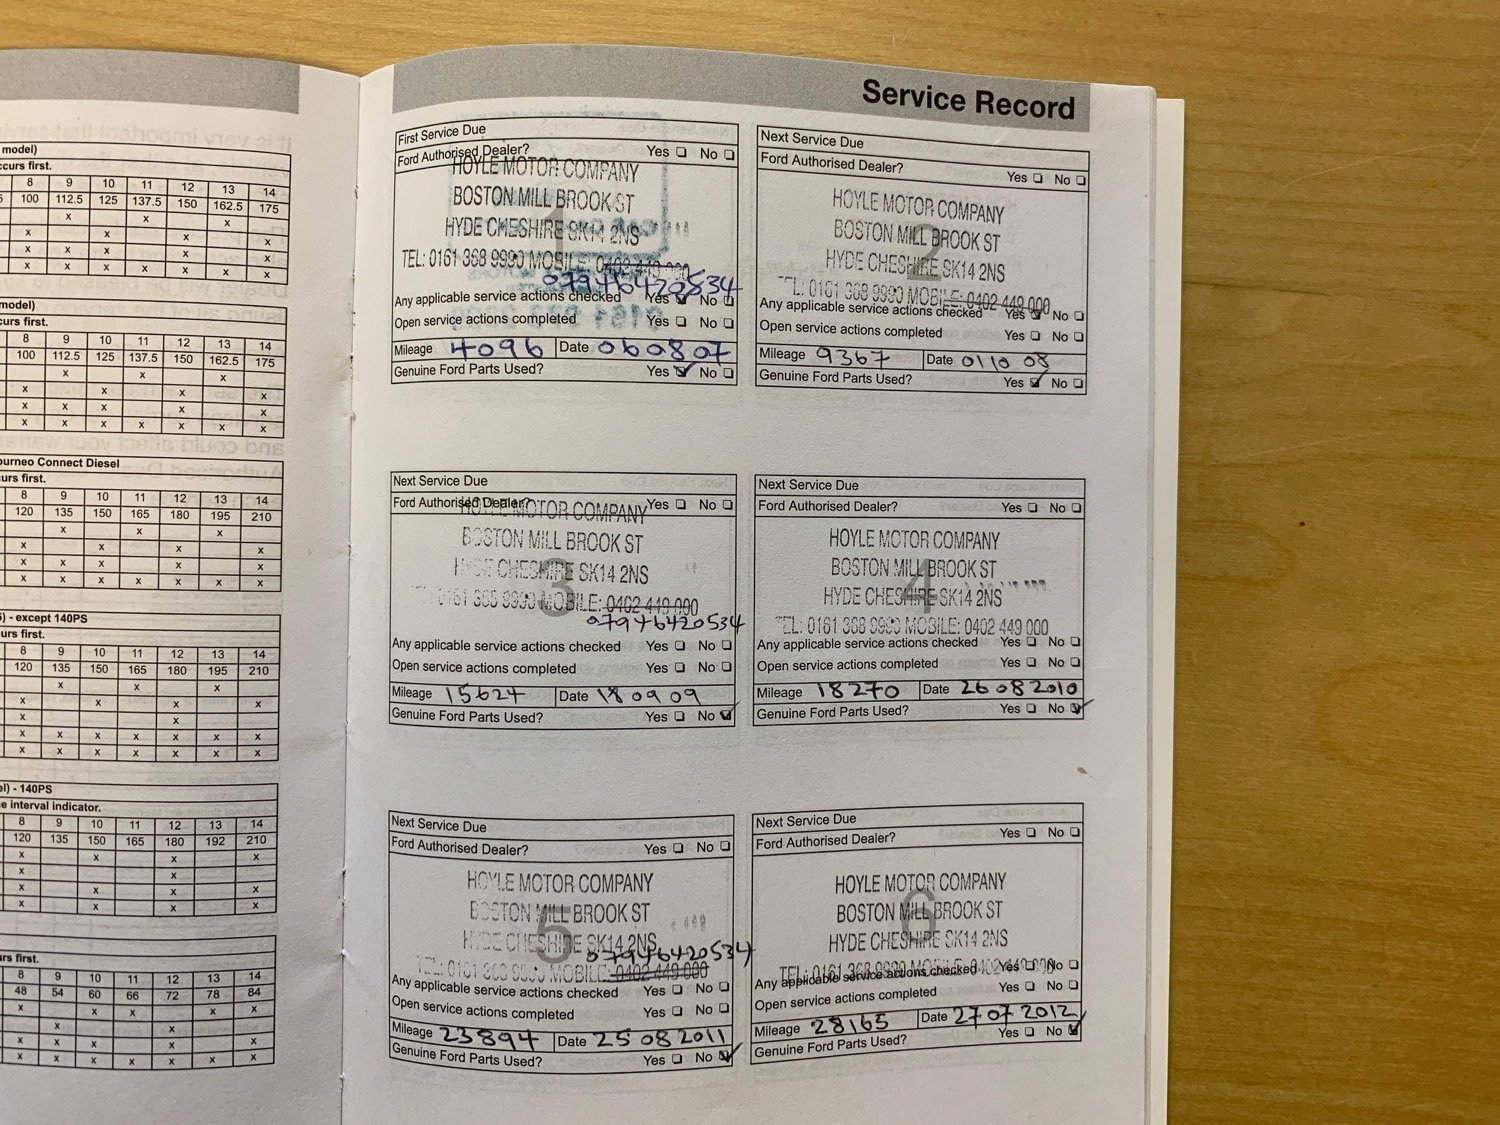 model)
ccurs first.
8 9 10 11 12 13 14
100 112.5 125 137.5 150 162.5 175
x x x
x x x x
x x x x x
x x x x x x x
model)
curs first.
8 9 10 11 12 13 14
100 112.5 125 137.5 150 162.5 175
x x x
x x x x
x x x x x
x x x x x x x
ourneo Connect Diesel
curs first.
8 9 10 11 12 13 14
120 135 150 165 180 195 210
x x x
x x x x
x x x x x
x x x x x x x
) - except 140PS
urs first.
8 9 10 11 12 13 14
120 135 150 165 180 195 210
x x x
x x x x
x x
x x x x x x x
x x x x x x x
el) - 140PS
e interval indicator.
8 9 10 11 12 13 14
120 135 150 165 180 192 210
x x x x
x x
x x x x
x x x x
rs first.
8 9 10 11 12 13 14
48 54 60 66 72 78 84
x x x x x
x x
x x x x
x x x x x x x
Service Record
First Service Due
Ford Authorised Dealer? Yes No
HOYLE MOTOR COMPANY
BOSTON MILL BROOK ST
1
HYDE CHESHIRE SK14 2NS
TEL: 0161 368 9990 MOBILE: 0402 449 000
07946420534
Any applicable service actions checked Yes No
Open service actions completed Yes No
Mileage 4096 Date 060807
Genuine Ford Parts Used? Yes No
Next Service Due
Ford Authorised Dealer? Yes No
HOYLE MOTOR COMPANY
BOSTON MILL BROOK ST
2
HYDE CHESHIRE SK14 2NS
TEL: 0161 368 9990 MOBILE: 0402 449 000
Any applicable service actions checked Yes No
Open service actions completed Yes No
Mileage 9367 Date 01 10 08
Genuine Ford Parts Used? Yes No
Next Service Due
Ford Authorised Dealer? Yes No
HOYLE MOTOR COMPANY
BOSTON MILL BROOK ST
3
HYDE CHESHIRE SK14 2NS
TEL: 0161 368 9990 MOBILE: 0402 449 000
07946420534
Any applicable service actions checked Yes No
Open service actions completed Yes No
Mileage 15624 Date 18 09 09
Genuine Ford Parts Used? Yes No
Next Service Due
Ford Authorised Dealer? Yes No
HOYLE MOTOR COMPANY
BOSTON MILL BROOK ST
4
HYDE CHESHIRE SK14 2NS
TEL: 0161 368 9990 MOBILE: 0402 449 000
Any applicable service actions checked Yes No
Open service actions completed Yes No
Mileage 18270 Date 26 08 2010
Genuine Ford Parts Used? Yes No
Next Service Due
Ford Authorised Dealer? Yes No
HOYLE MOTOR COMPANY
BOSTON MILL BROOK ST
5
HYDE CHESHIRE SK14 2NS
07946420534
TEL: 0161 368 9990 MOBILE: 0402 449 000
Any applicable service actions checked Yes No
Open service actions completed Yes No
Mileage 23894 Date 25 08 2011
Genuine Ford Parts Used? Yes No
Next Service Due
Ford Authorised Dealer? Yes No
HOYLE MOTOR COMPANY
BOSTON MILL BROOK ST
6
HYDE CHESHIRE SK14 2NS
TEL: 0161 368 9990 MOBILE: 0402 449 000
Any applicable service actions checked Yes No
Open service actions completed Yes No
Mileage 28165 Date 27 07 2012
Genuine Ford Parts Used? Yes No